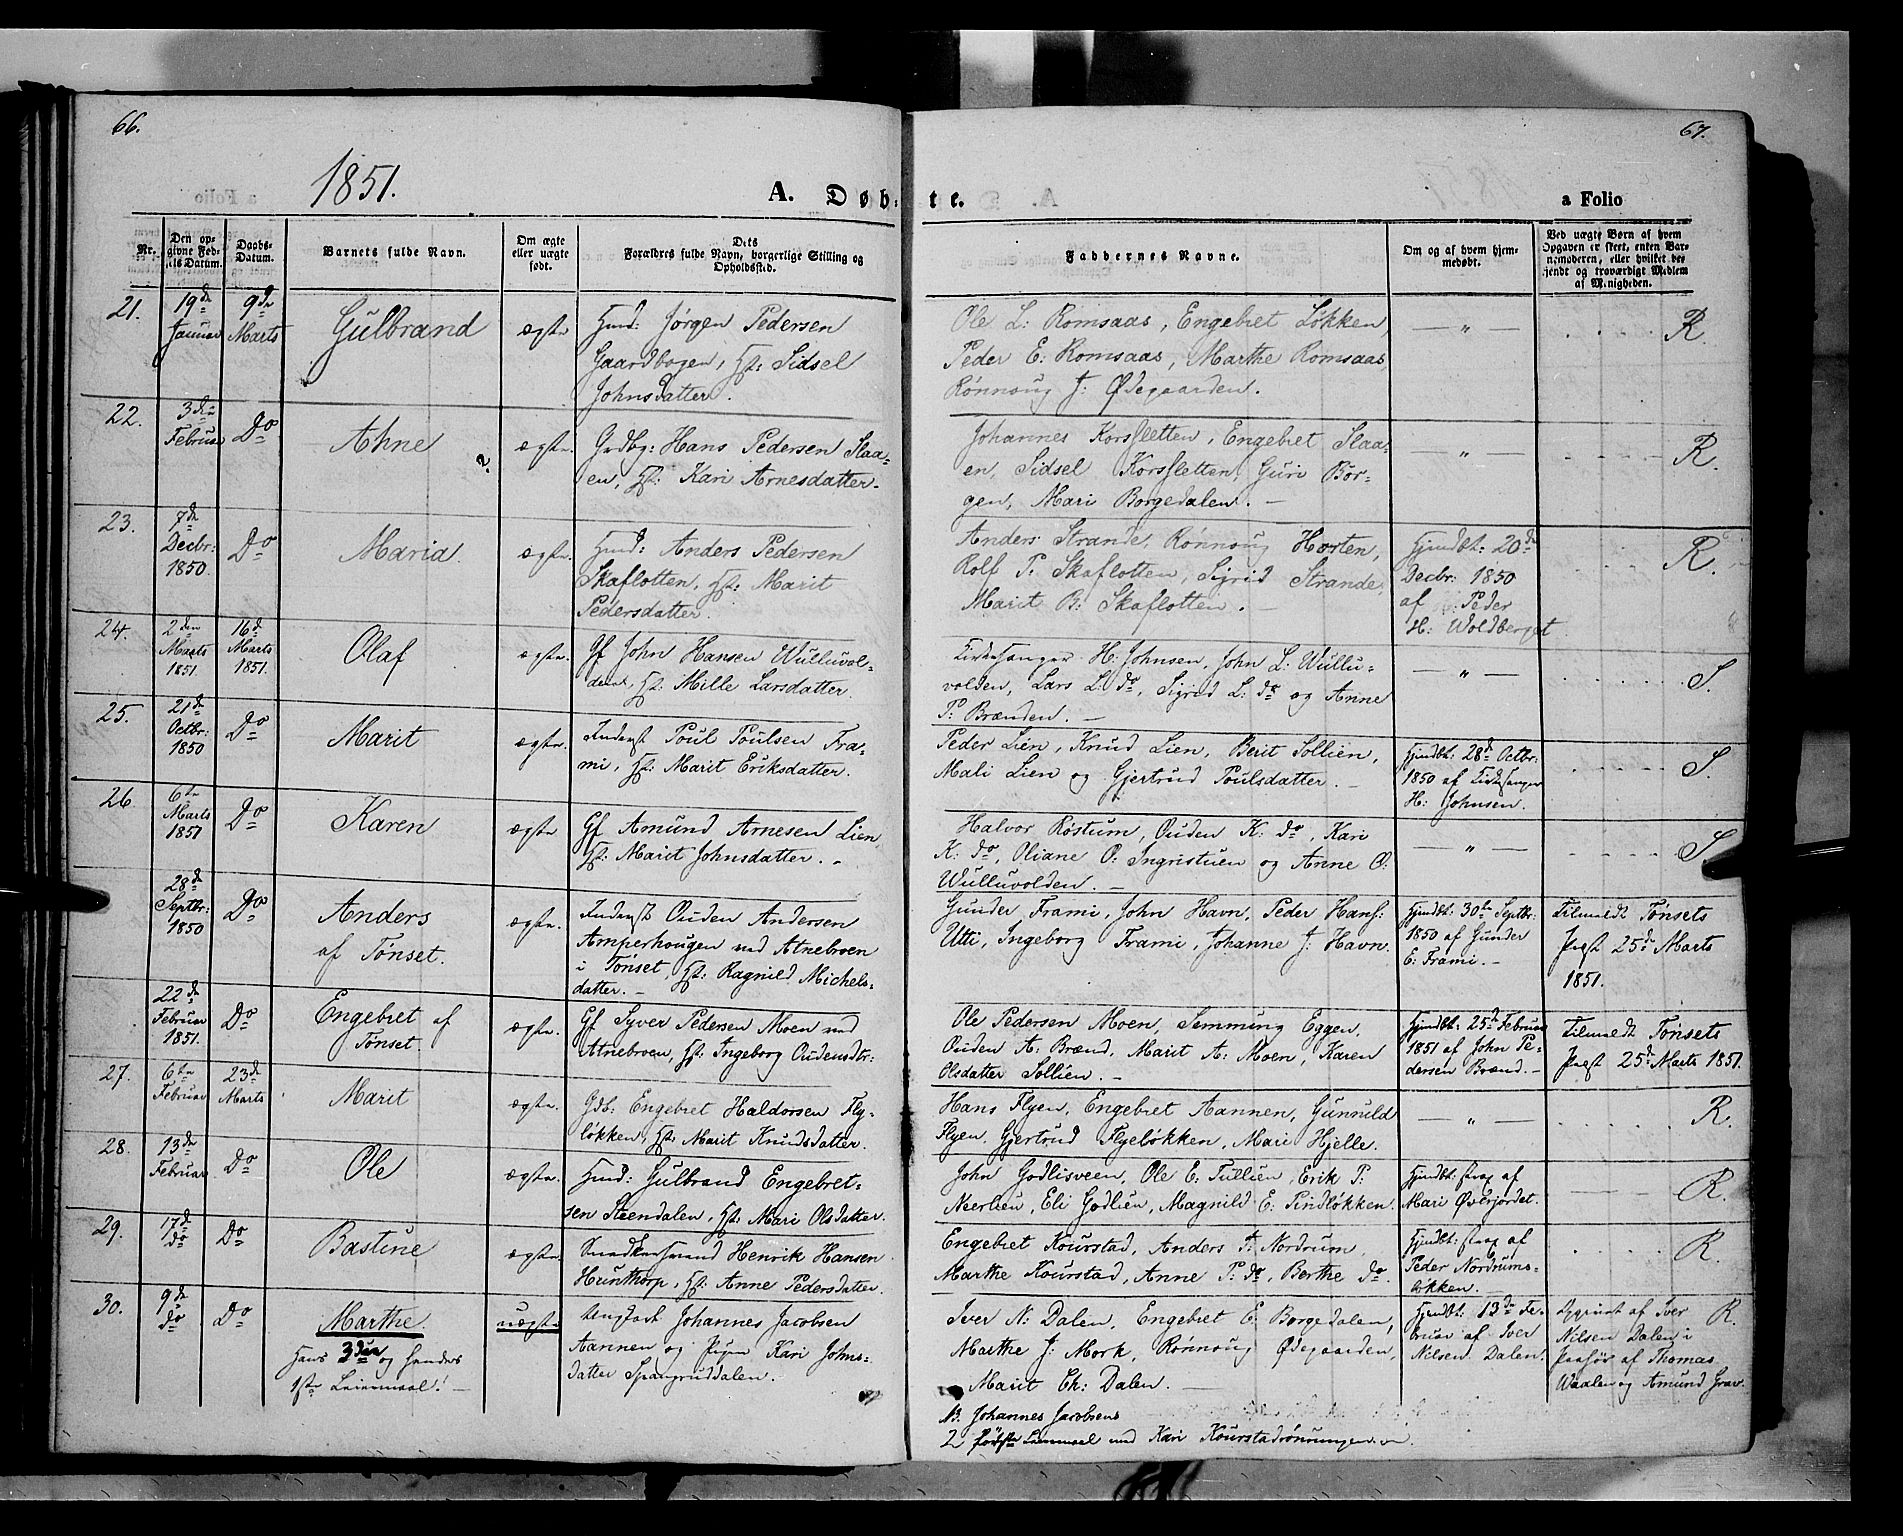 66.
67.
1851.
A. Døb-
te.
a Folio
Nr.
Den op-
givne Fød-
sels Datum.
Daabs-
Datum.
Barnets fulde Navn.
Om ægte
eller uægte
født.
Dets
Forældres fulde Navn, borgerlige Stilling og
Opholdssted.
Faddernes Navne.
Om og af hvem hjem-
medøbt.
Ved uægte Børn af hvem
Opgaven er skeet, enten Bar-
nemoderen, eller hvilket bes
jendt og troværdigt Medlem
af Menigheden.
21.
19de
Januar
9de
Marts
Gulbrand
ægte
Huusm: Jørgen Pedersen
Gaardbogen, Hst: Sidsel
Johnsdatter.
Ole L: Romsaas, Engebret Løkken,
Peder E: Romsaas, Marthe Romsaas,
Rønnoug J: Ødegaarden.
— " —
R.
22.
3die
Februar
Do
Ahne
ægte.
Grdbg: Hans Pedersen Slaa-
en, Hst: Kari Arnesdatter.
Johannes Korsfletten, Engebret Slaa-
en, Sidsel Korsfletten, Guri Bor-
gen, Mari Borgedalen. —
— " —
R.
23.
7de
Decbr:
1850.
Do
Maria
ægte.
Huusm: Anders Pedersen
Skaflotten, Hst: Marit
Pedersdatter.
Anders Strande, Rønnoug Horten,
Rolf P: Skaflotten, Sigrid Strande,
Marit B: Skaflotten. —
Hjmdbt: 20de
Decbr: 1850
af Peder
H: Woldberget
R.
24.
2den
Marts
1851
16de
Marts
1851.
Olaf
ægte.
Gf John Hansen Wulluvol-
den, Hst: Mille Larsdatter.
Kirkesanger H: Johnsen, John L: Wullu-
volden, Lars L: do, Sigrid L: do og Anne
P: Brænden. —
— " —
S.
25.
21de
Octbr:
1850
Do
Marit
ægte.
Inderst Poul Poulsen Fra-
mi, Hst: Marit Eriksdatter.
Peder Lien, Knud Lien, Berit Sollien,
Mali Lien og Gjertrud Poulsdatter. —
Hjmdbt: 28de Octbr:
1850 af Kirkesanger
H: Johnsen.
S.
26
6te
Marts
1851
Do
Karen
ægte.
Gf Amund Arnesen Lien
Hst: Marit Johnsdatter. —
Halvor Røstum, Ouden K: do, Kari
K: do, Oliane O: Ingristuen og Anne O:
Wulluvolden. —
— " —
S.
28de
Septbr:
1850
Do
Anders
af Tønset.
ægte.
Inderst Ouden Andersen
Amperhougen ved Atnebroen
i Tønset, Hst: Ragnild Michels-
datter. —
Gunder Frami, John Havn, Peder Hans:
Utti, Ingeborg Frami, Johanne J: Havn.
Hjmdbt: 30te Septbr:
1850 af Gunder
E: Frami. —
Tilmeldt Tønsets
Præst 25de Marts
1851.
22de
Februar
1851.
Do
Engebret af
Tønset.
ægte.
Gf Syver Pedersen Moen ved
Atnebroen, Hst: Ingeborg Oudensdtr:
Ole Pedersen Moen, Semmung Eggen,
Ouden A: Brænd, Marit A: Moen, Karen
Olsdatter Sollien. —
Hjmdbt: 25de Februar
1851 af John Pe-
dersen Brænd. —
Tilmeldt Tønsets
Præst 25de Marts 1851.
27.
6te
Februar
23de
Marts
Marit
ægte.
Gdb: Engebret Haldorsen Fly-
løkken, Hst: Marit Knudsdatter.
Hans Flyen, Engebret Aannen, Gunnild
Flyen, Gjertrud Flyeløkken, Mari Hjelle.
— " —
R.
28.
13de
Februar
Do
Ole
ægte.
Huusm: Gulbrand Engebret-
sen Steendalen, Hst: Mari Olsdatter.
John Godlisveen, Ole E: Tullien, Erik P:
Neerlien, Eli Godlien, Magnild E: Pindløkken.
Hjmdbt: strax af
Mari Øverjordet.
R.
29.
17de
do
Do
Bastine
ægte.
Snedkersvend Henrik Hansen
Hunthorp, Hst: Anne Pedersdatter.
Engebret Kourstad, Anders P: Nordrum
Marthe Kourstad, Anne P: do, Berthe do.
Hjmdbt: strax af
Peder Nordrums-
løkken.
R.
30.
9de
do
Do
Marthe.
Hans 3die og hendes
1ste Leiermaal! —
uægte
Ungkarl Johannes Jacobsen
Aannen og Pigen Kari Johns-
datter Spangruddalen.
Iver N: Dalen, Engebret E: Borgedalen,
Marthe J: Mork, Rønnoug Ødegaarden,
Marit Ch: Dalen. —
Hjmdbt: 13de Fe-
bruar af Iver
Nilsen Dalen.
Opgivet af Iver
Nilsen Dalen i
Paahør af Thomas
Waalen og Amund Grav.
R.
NB. Johannes Jacobsens
2 første Leiermaal med Kari Kourstadrønningen